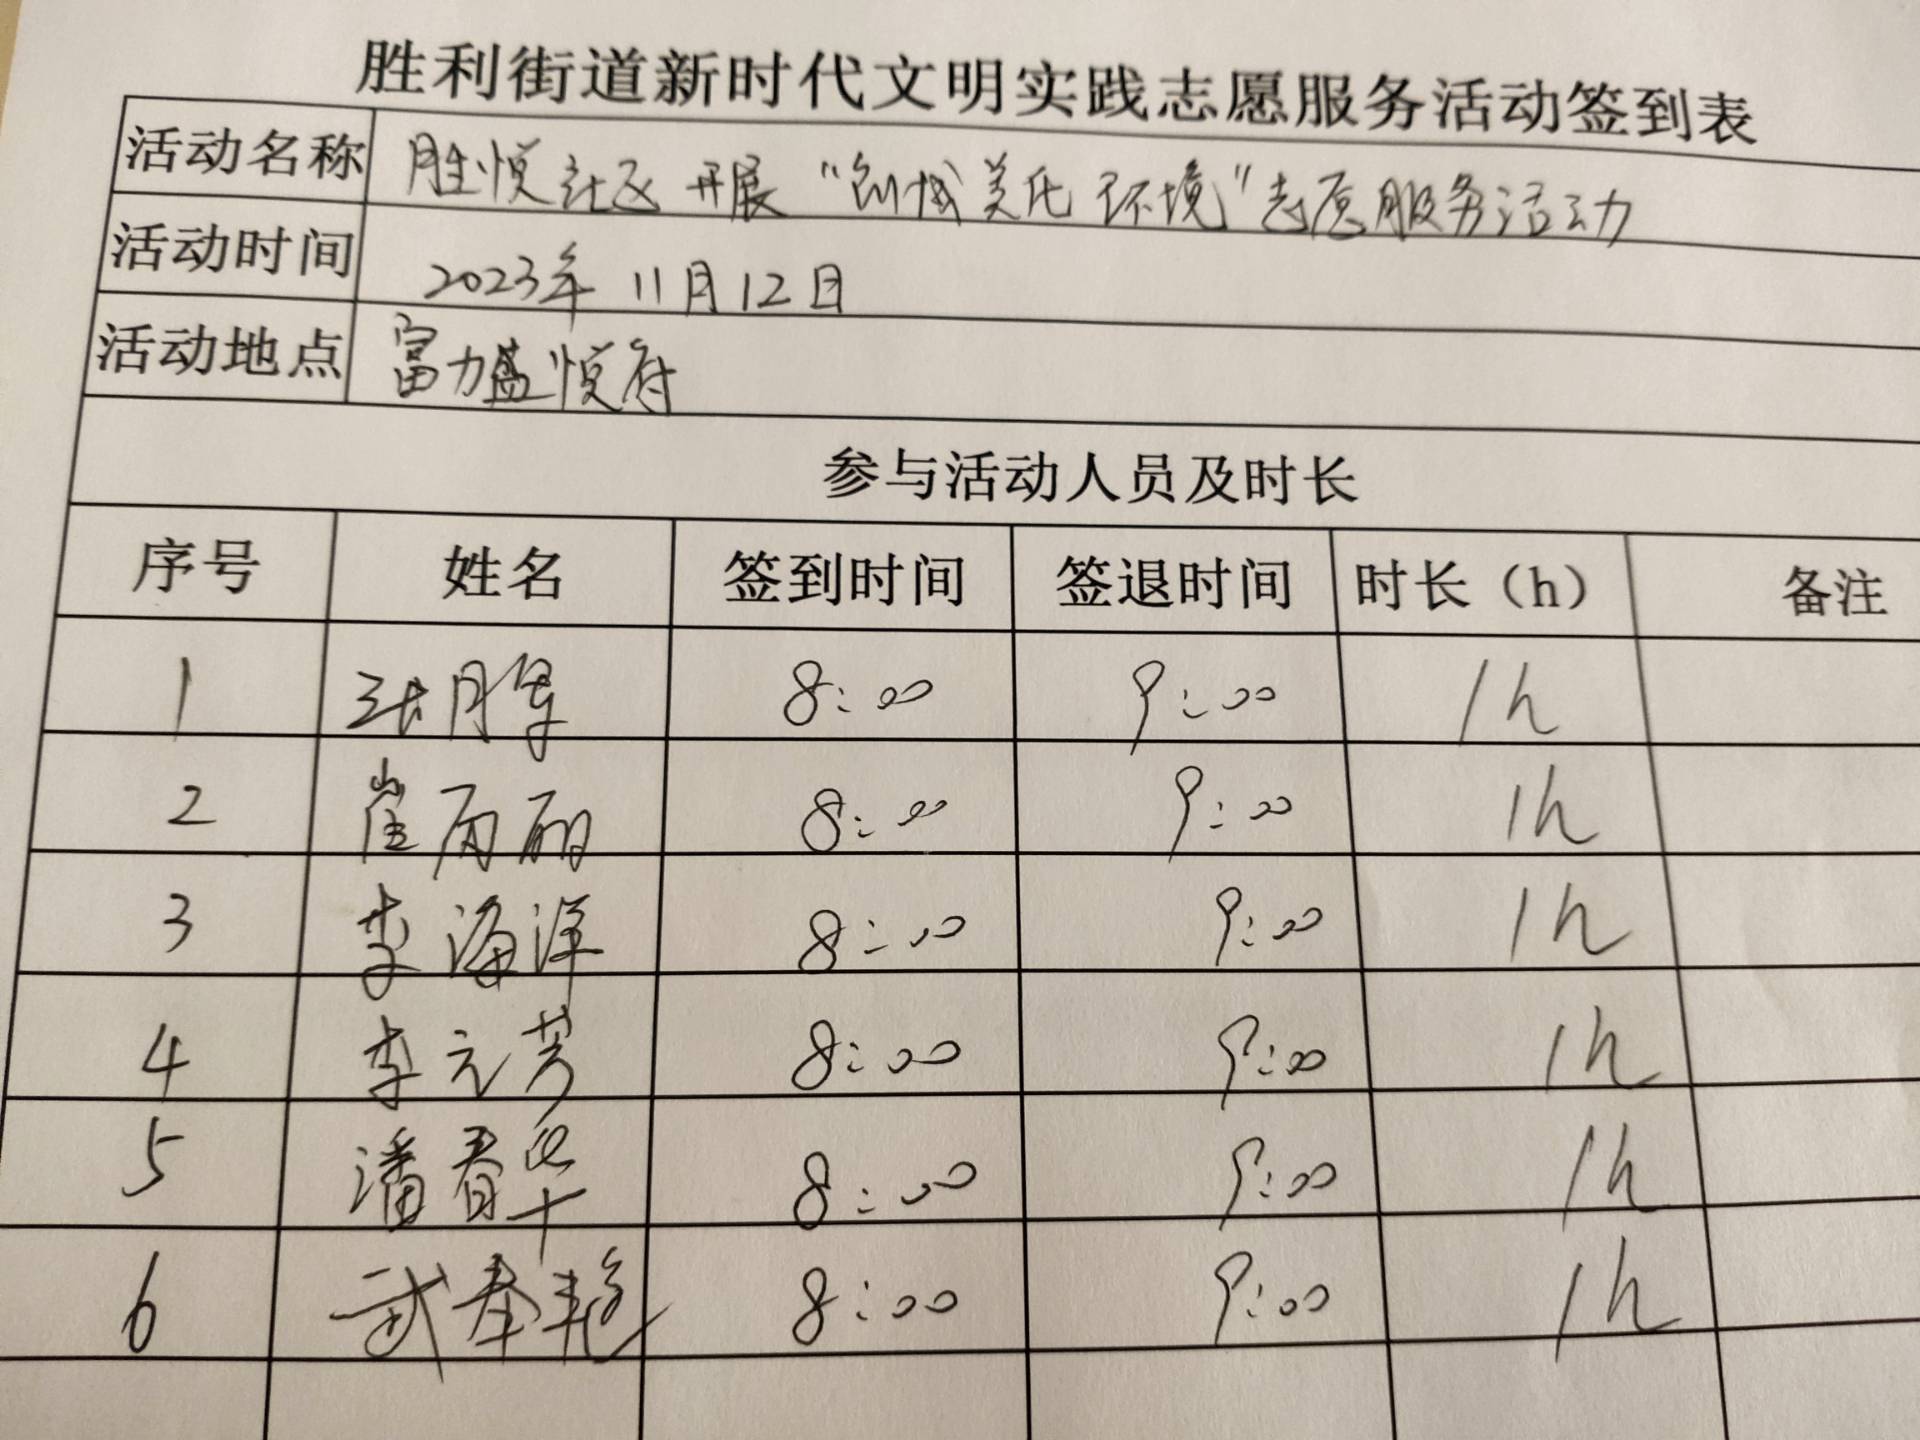 胜利街道新时代文明实践志愿服务活动签到表
活动名称 胜悦社区开展“创城美化环境”志愿服务活动
活动时间 2023年11月12日
活动地点 富力盛悦府
参与活动人员及时长
序号 姓名 签到时间 签退时间 时长（h） 备注
1 张月 8:00 9:00 1h
2 崔丽 8:00 9:00 1h
3 李海洋 8:00 9:00 1h
4 李元芳 8:00 9:00 1h
5 潘春华 8:00 9:00 1h
6 武春艳 8:00 9:00 1h